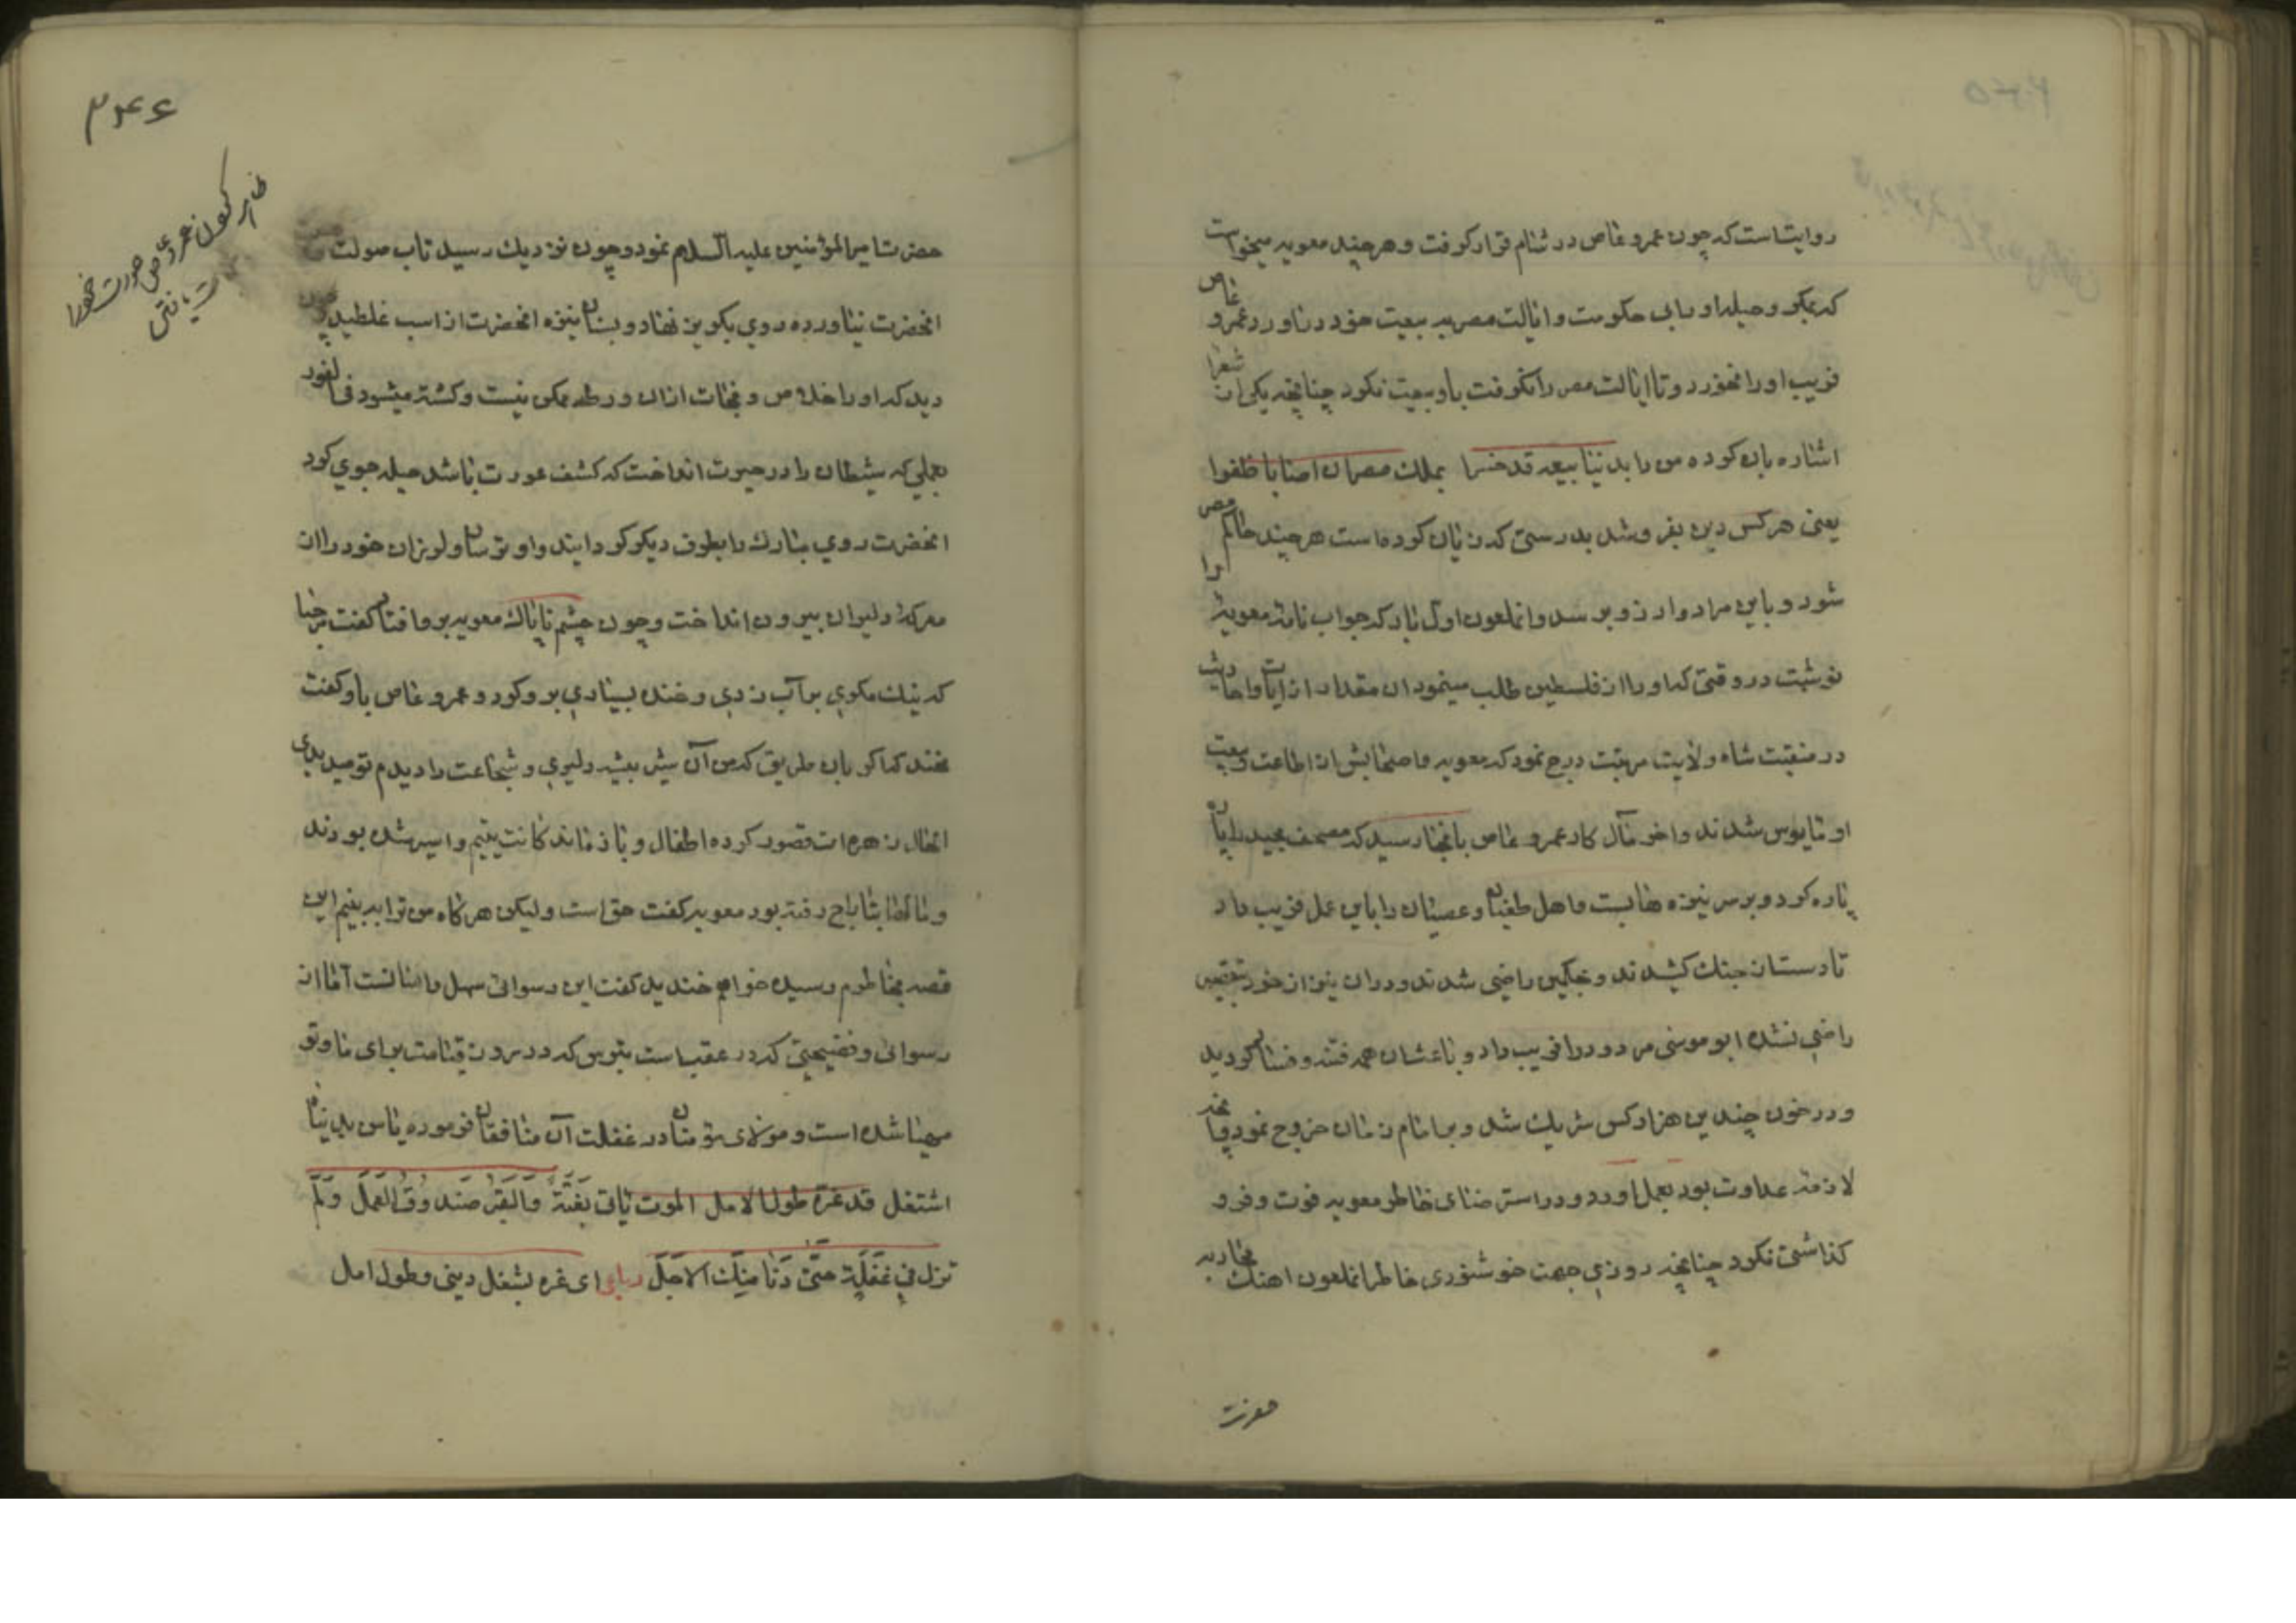 روایتست که چون عمرو عاص در شام قرار کرفت و هر چند معویه میخواست
که بمکر و حیله او را بی حکومت و ایالت مصر به بیعت خود در اورد عمرو عاص
فریب او را نخورد و تا ایالت مصر را نکرفت باو بیعت نکرد چنانچه یکی از شعرا
اشاره بان کرده من را بدنیا بیعه قد خسرا بملک مصر ان اصابا ظفرا
یعنی هر کس دین بفروشد بدرستی که زیان کرده است هر چند حاکم مصر
شود و باین مراد و ارزو برسد و انملعون اول بار که جواب نامه معویه را
نوشت در وقتی که او را از فلسطین طلب مینمود ان مقدار از ایات و احادیث
در منقبت شاه ولایت مرتبت درج نمود که معویه و اصحابش از اطاعت و بیعت
او مایوس شدند و اخر مآل کار عمرو عاص بانجا رسید که مصحف مجید را پاره
پاره کرد و بر سر نیزه ها بست و اهل طغیان و عصیان را باین عمل فریب داد
تا دست از جنک کشیدند و بحکمین راضی شدند و در ان نیز از خود بتقصیر
راضی نشده ابو موسی مردود را فریب داد و باعث ان همه فتنه و فساد کردید
و در خون چندین هزار کس شریک شد و بر امام زمان خروج نمود و انچه
لازمه عداوت بود بعمل اورد و در استرضای خاطر معویه فوت و فرو
کذاشتی نکرد چنانچه روزی جهت خوشنودی خاطر انملعون اهنک محاربه
حضرت
۳۴۶
ظاهر کردن عمرو عاص عورت خود را
حضرت امیر المؤمنین علیه السلام نمود و چون نزدیک رسید تاب صولت
انحضرت نیاورده روی بکریز نهاد و بسنان نیزه انحضرت از اسب غلطید چون
دید که او را خلاص و نجات ازان ورطه ممکن نیست و کشته میشود فی الفور
بعملی که شیطان را در حیرت انداخت که کشف عورت باشد حیله جوی کرد
انحضرت روی مبارک را بطرف دیکر کردانید و او ترسان و لرزان خود را از
معرکه دلیران بیرون انداخت و چون چشم ناپاک معویه بر و افتاد کفت مرحبا
که نیک مکری بر آب زدی و خنده بسیاری برو کرد و عمرو عاص باو کفت
مخند که اکر بان طریق که من آن شیر بیشه دلیری و شجاعت را دیدم تو میدیدی
الحال زهره ات قصور کرده اطفال و باز ماندکانت یتیم و اسیر شده بودند
و مالها بتاراج رفته بود معویه کفت حق است و لیکن هر کاه من ترا به بینم این
قصه بخاطرم رسیده خواهم خندید کفت این رسوائی سهل و اسانست آما از
رسوائی و فضیحتی که در عقب است بترس که در روز قیامت برای ما و تو
مهیا شده است و مولای متقیان در غفلت آن منافقان فرموده یا من بدنیاه
اشتغل قد غره طول الامل الموت یاتی بَغتَةً وَالقَبرُ صَندوقُ العَمَل وَلَم
تزل فی غَفلَةٍ حَتّی دَنا مِنکَ الاَجَل رباعی ای غره بشغل دینی و طول امل